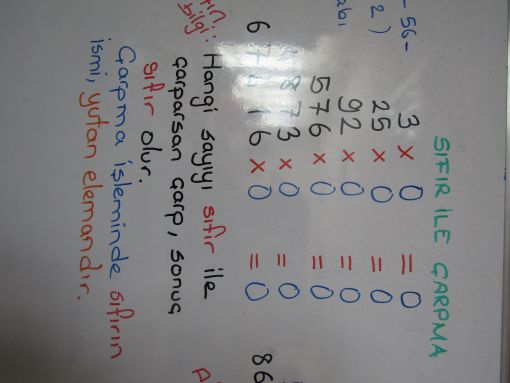 - 56 -
2 )
abı
SIFIR İLE ÇARPMA
3 x 0 = 0
25 x 0 = 0
92 x 0 = 0
576 x 0 = 0
873 x 0 = 0
16 x 0 = 0
bilgi: Hangi sayıyı sıfır ile
çarparsan çarp, sonuç
sıfır olur.
Çarpma işleminde sıfırın
ismi, yutan elemandır.
86